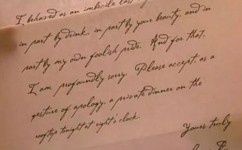 I behaved as an imbecile last
in part by drink, in part by your beauty, and in
part by my own foolish pride. And for that,
I am profoundly sorry. Please accept as a
gesture of apology, a private dinner on the
rooftop tonight at eight o'clock.
Yours truly